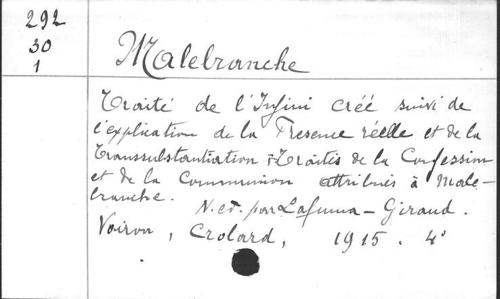 292
30
1
Malebranche
Traité de l'Infini créé suivi de
l'explication de la Presence réelle et de la
Transsubstantiation = Traités de la Confession
et de la Communion attribués à Male-
branche.
N. ed. par Lafuma - Giraud.
Voiron, Crolard, 1915. 4°